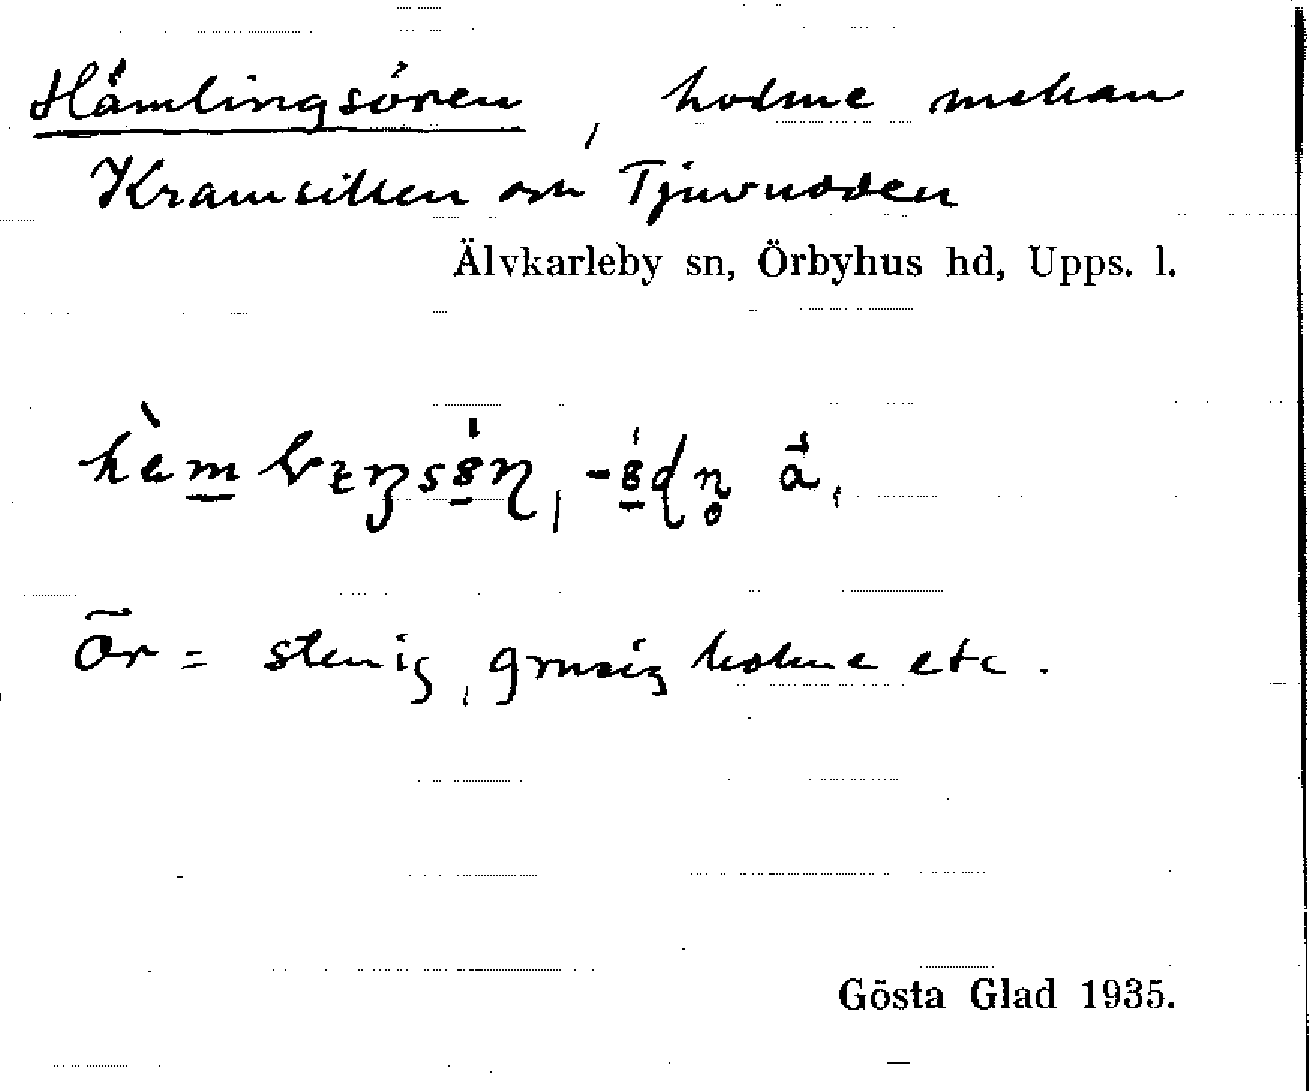 Hämlingsören, holme mellan
Kramsillen och Tjuvudden
Älvkarleby sn, Örbyhus hd, Upps. l.
ör = stenig, grusig holme etc.
Gösta Glad 1935.